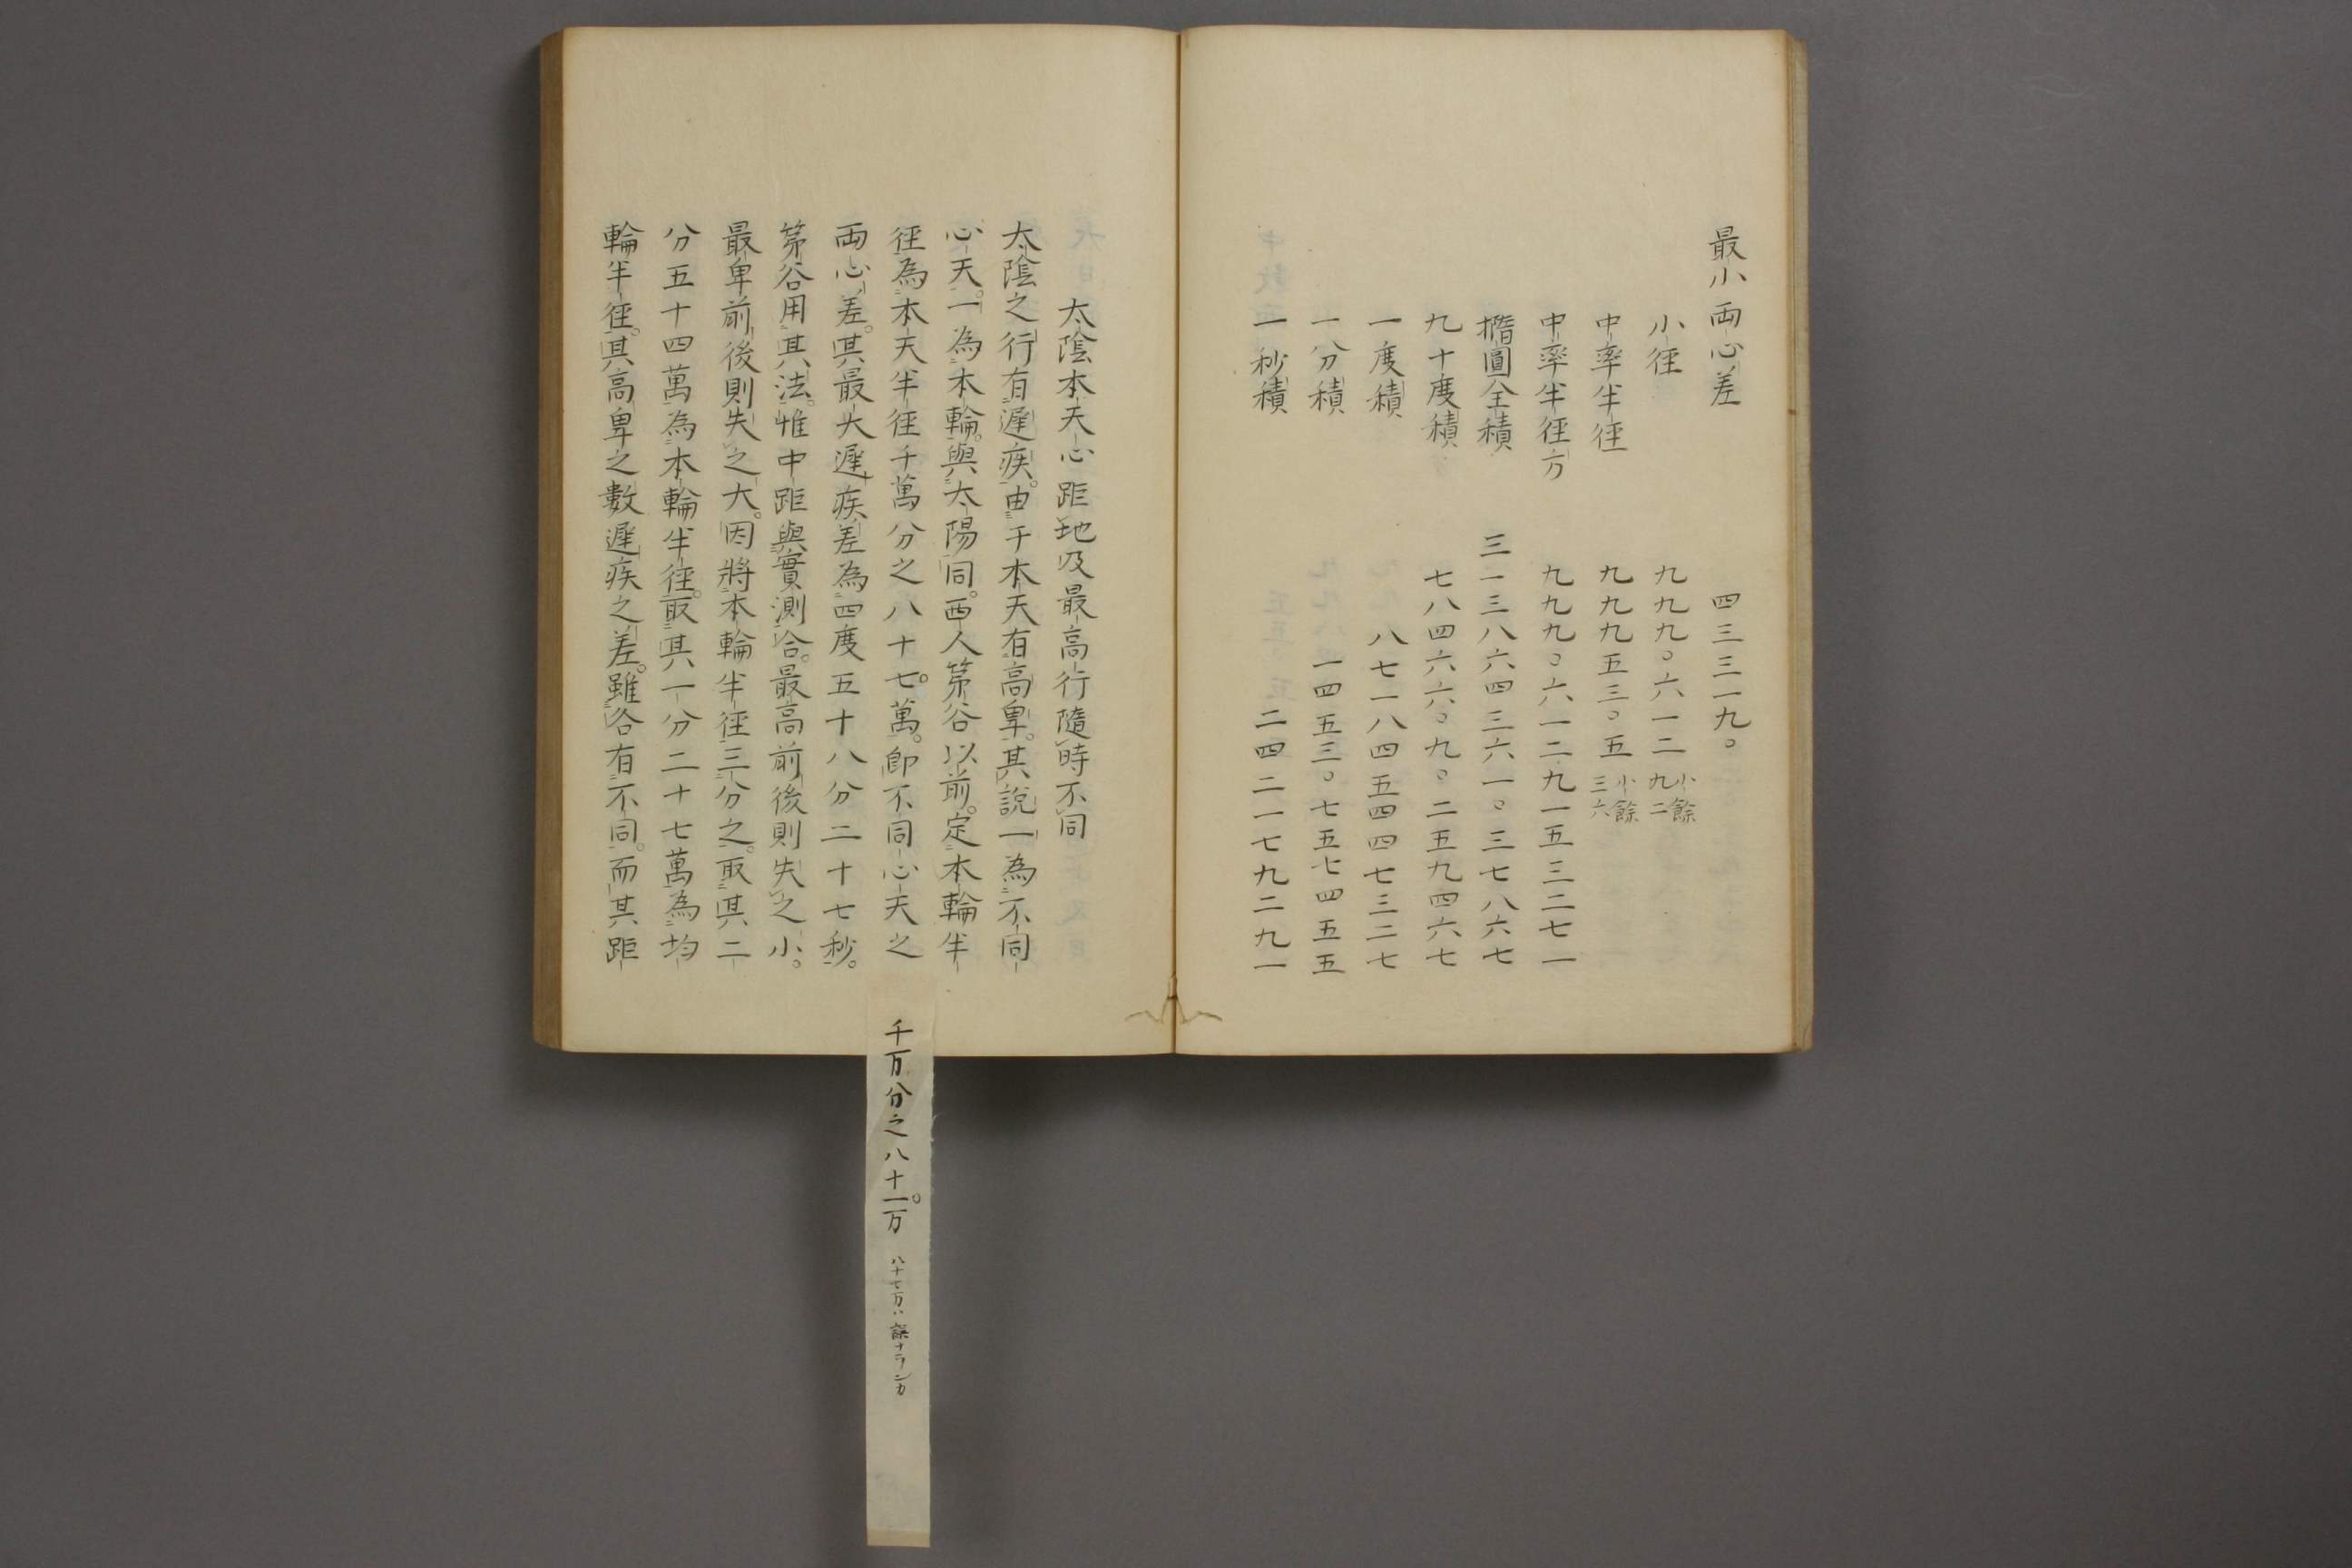 最小両心差 四三三一九〇
小徑 九九九〇六一二 小餘九二
中率半徑 九九九五三〇五 小餘三六
中率半徑方 九九九〇六一二九一五三二七一
橢圓全積 三一三八六四三六一〇三七八六七
九十度積 七八四六六〇九〇二五九四六七
一度積 八七一八四五四四七三二七
一分積 一四五三〇七五七四五五
一秒積 二四二一七九二九一
太陰本天心距地及最高行隨時不同
太陰之行有遲疾。由于本天有高卑。其說一為不同
心天。一為本輪。與太陽同。西人第谷以前。定本輪半
徑為本天半徑千萬分之八十七萬。即不同心天之
両心差。其最大遲疾差為四度五十八分二十七秒。
第谷用其法。惟中距與實測合。最高前後則失之小。
最卑前後則失之大。因將本輪半徑三分之。取其二
分五十四萬為本輪半徑。取其一分二十七萬為均
輪半徑。其高卑之數遲疾之差。雖各有不同。而其距
千万分之八十一万 八十七万ハ誤ナランカ